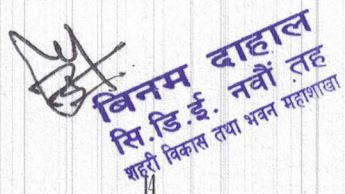 बिनम दाहाल
सि.डि.ई. नवौं तह
शहरी विकास तथा भवन महाशाखा
14